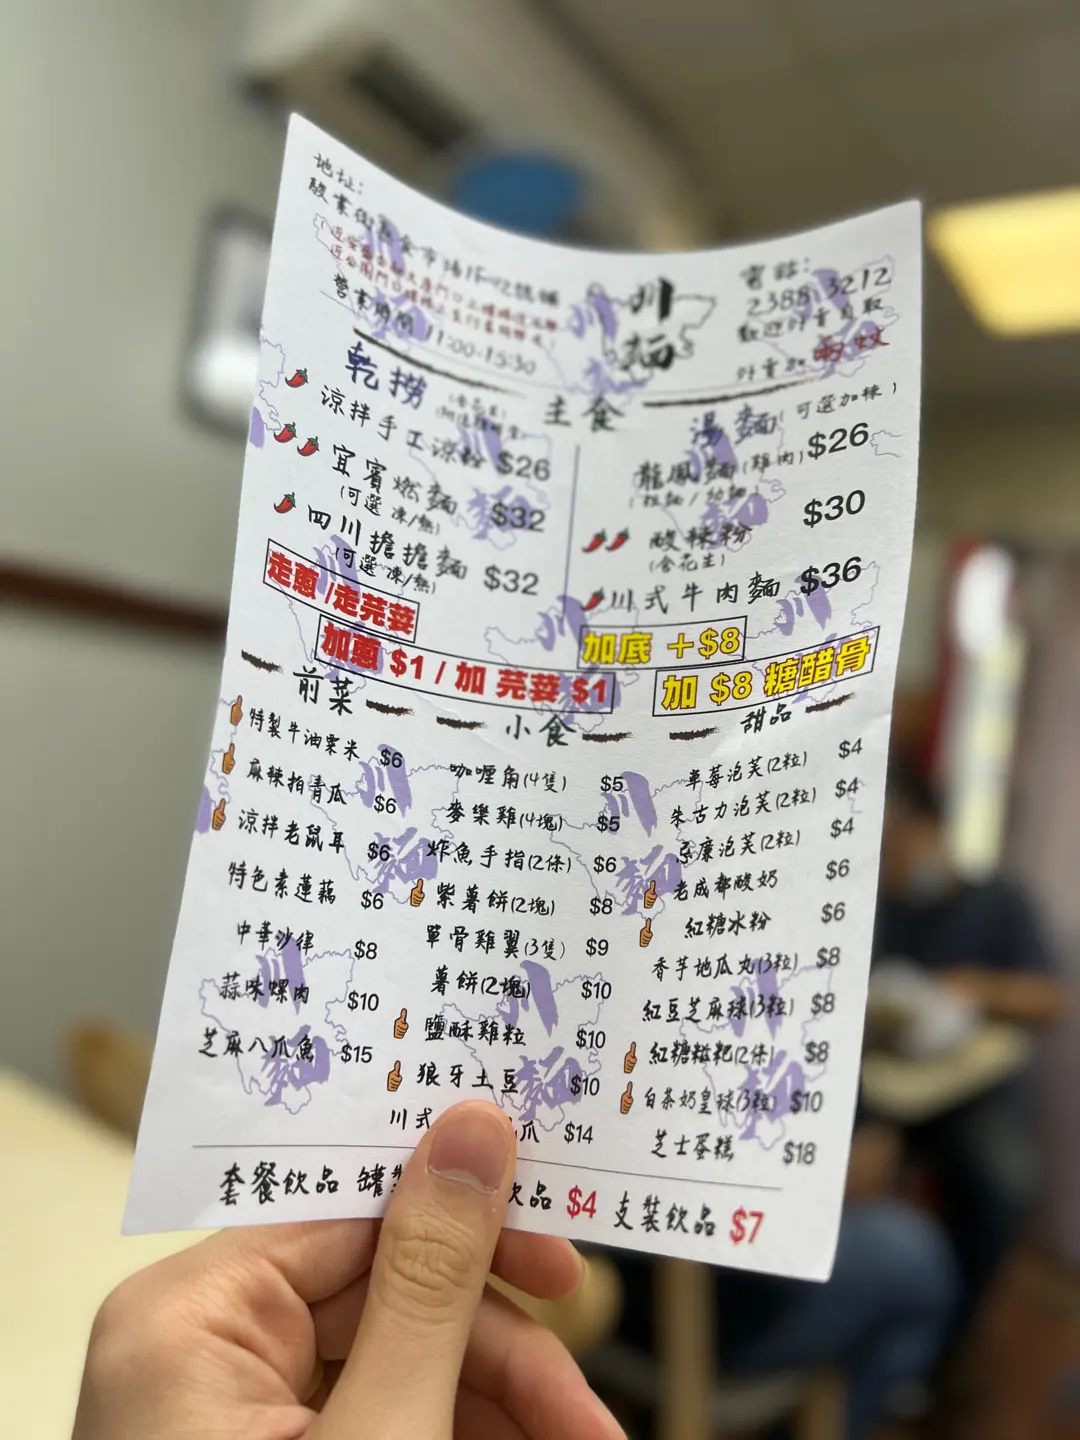 地址:
駿業街駿業市場1F-42號舖
營業時間 11:00-15:30
川
麵
電話:
2388 3212
歡迎外賣自取
外賣加兩蚊
主食
乾撈
(含花生)
涼拌手工涼粉 $26
宜賓燃麵 $32
(可選 凍/熱)
四川擔擔麵 $32
(可選 凍/熱)
湯麵(可選加辣)
龍鳳麵(雞肉) $26
(粗麵/幼麵)
酸辣粉 $30
(含花生)
川式牛肉麵 $36
走蔥/走芫荽
加蔥 $1/加 芫荽 $1
加底 +$8
加 $8 糖醋骨
前菜
特製牛油粟米 $6
麻辣拍青瓜 $6
涼拌老鼠耳 $6
特色素蓮藕 $6
中華沙律 $8
蒜味螺肉 $10
芝麻八爪魚 $15
小食
咖喱角(4隻) $5
麥樂雞(4塊) $5
炸魚手指(2條) $6
紫薯餅(2塊) $8
單骨雞翼(3隻) $9
薯餅(2塊) $10
鹽酥雞粒 $10
狼牙土豆 $10
川式 爪 $14
甜品
草莓泡芙(2粒) $4
朱古力泡芙(2粒) $4
忌廉泡芙(2粒) $4
老成都酸奶 $6
紅糖冰粉 $6
香芋地瓜丸(3粒) $8
紅豆芝麻球(3粒) $8
紅糖糍粑(2條) $8
白茶奶皇球(3粒) $10
芝士蛋糕 $18
套餐飲品 罐裝 飲品 $4 支裝飲品 $7